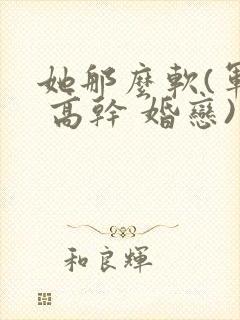 她那麼軟(軍
高幹 婚戀)
和良輝